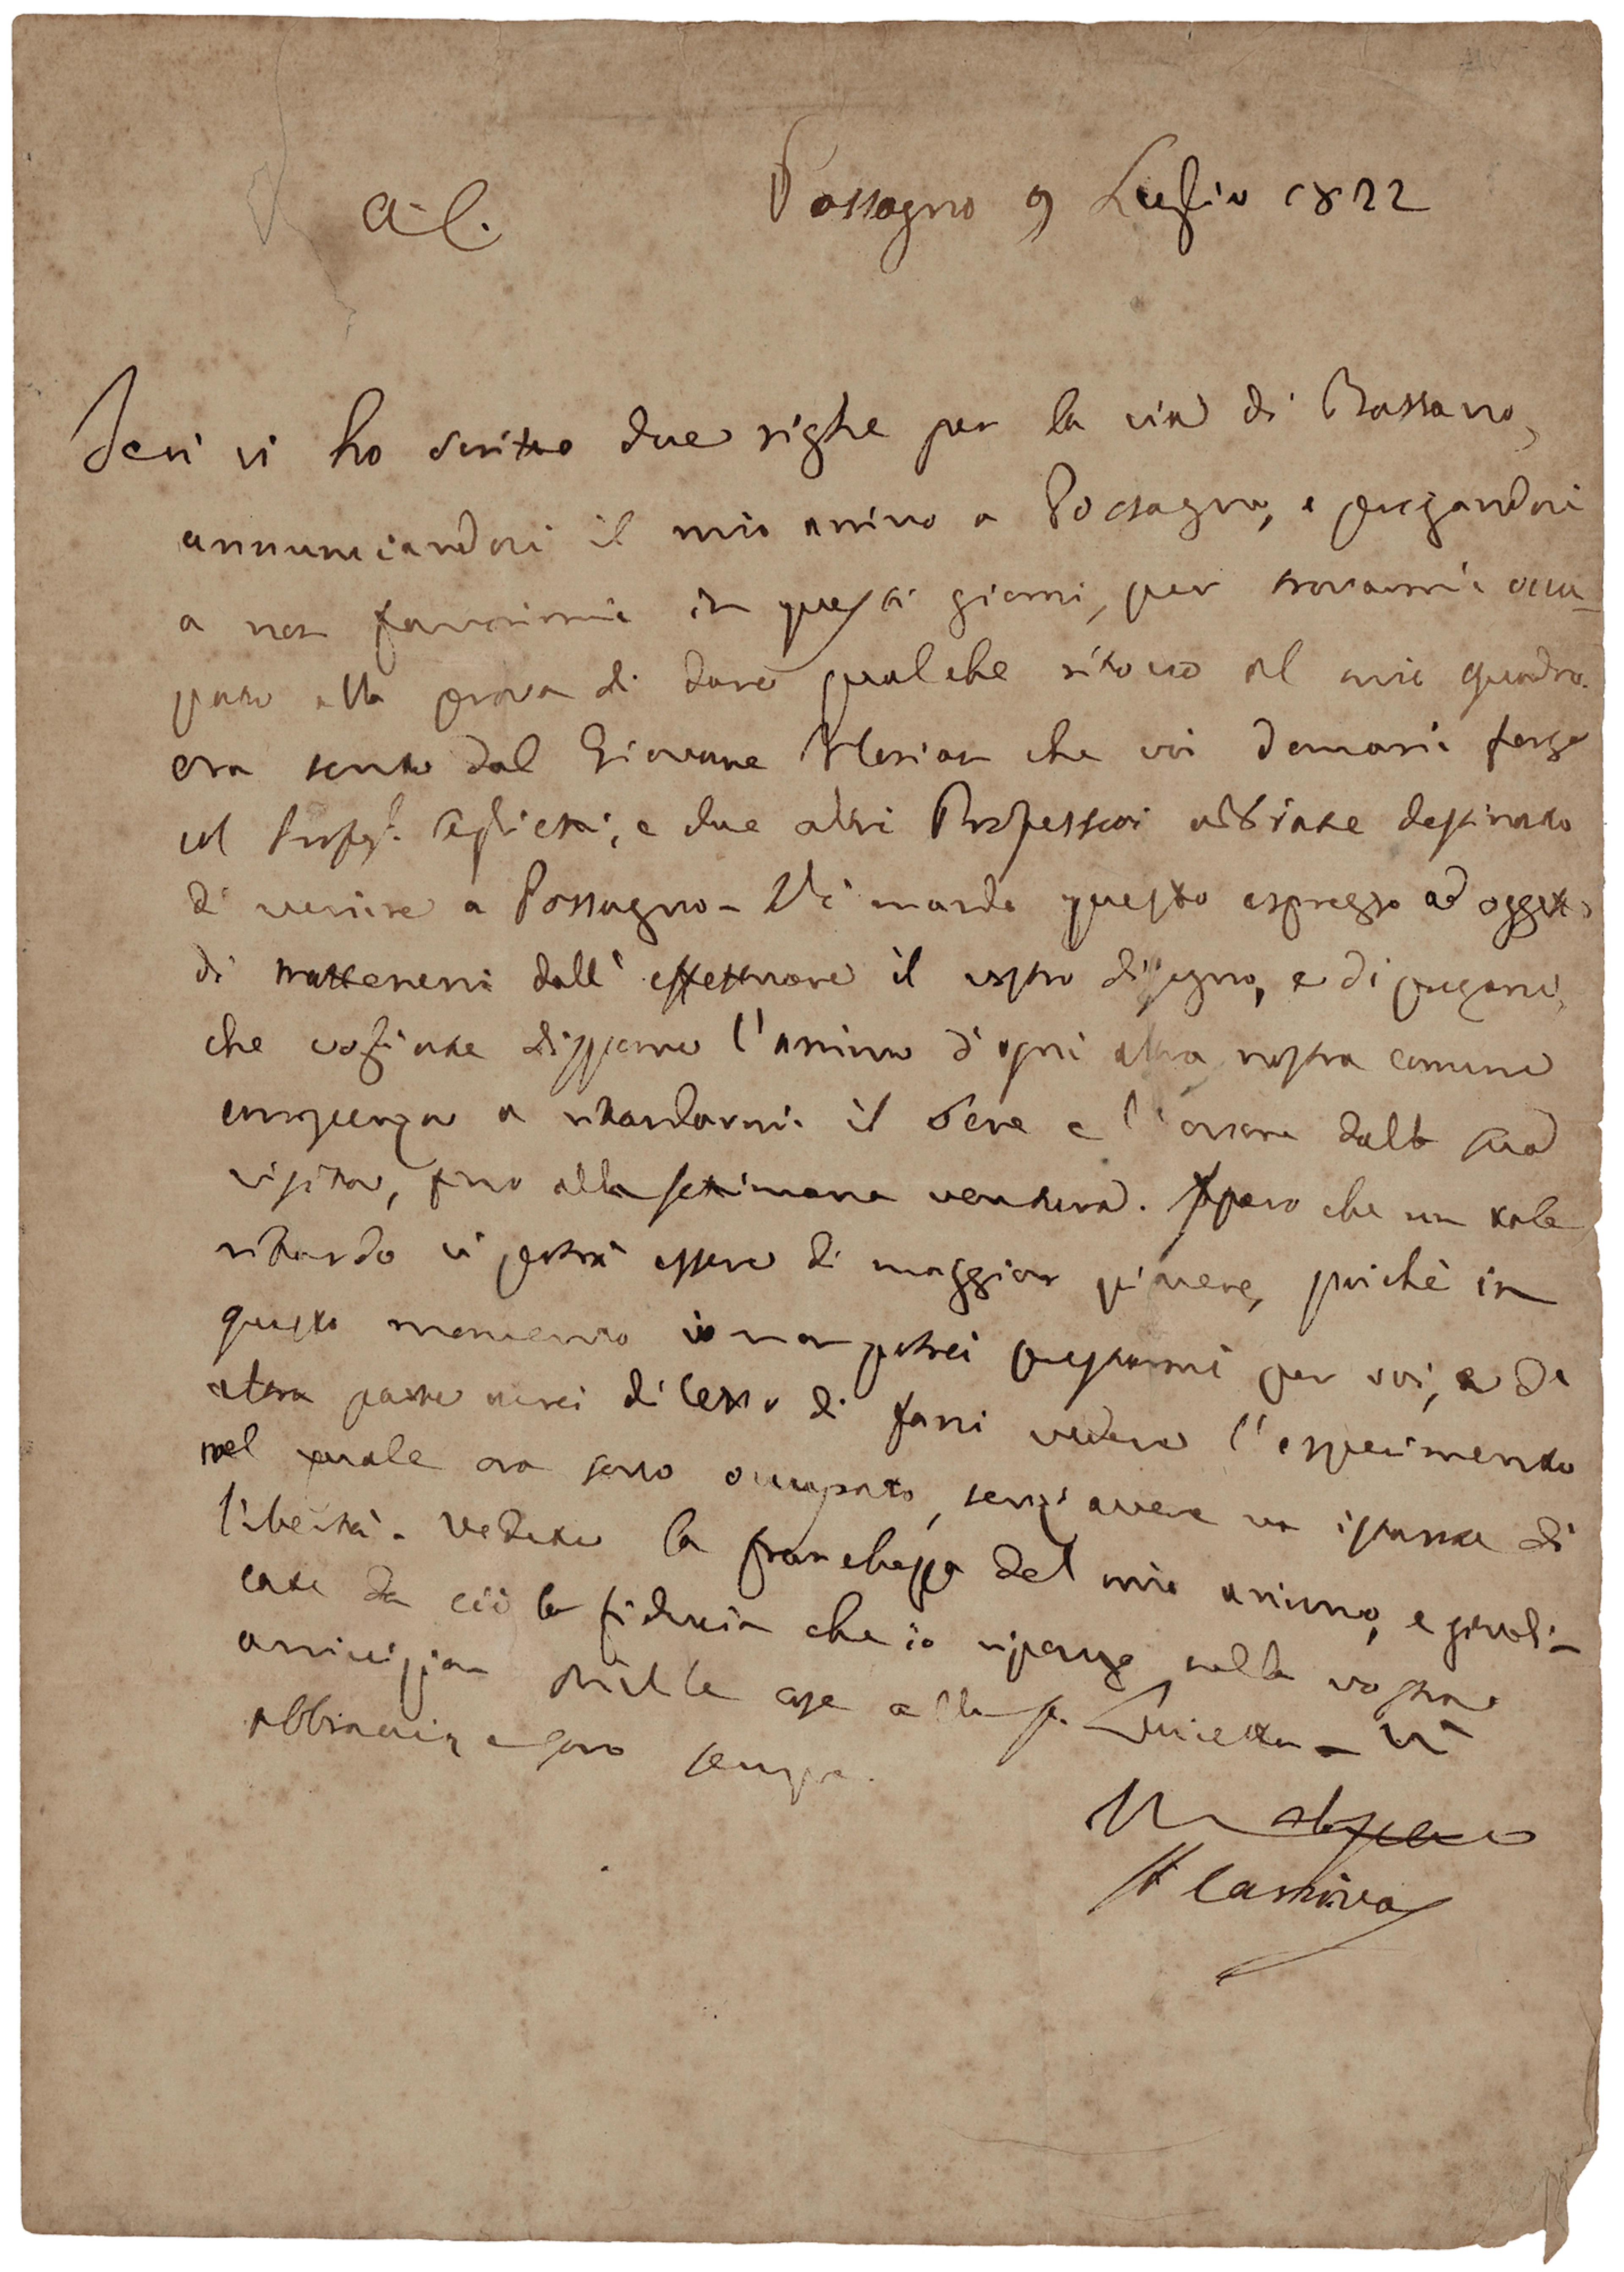 A. C.
Possagno 9 Luglio 1822
Ieri vi ho scritto due righe per la via di Bassano,
annunciandovi il mio arrivo a Possagno, e pregandovi
a non favorirmi in questi giorni, per trovarmi occu-
pato alla prova di dare qualche ritocco al mio quadro.
ora sento dal Giovane che voi domani forse
col Profes. Aglietti, e due altri Professori abbiate destinato
di venire a Possagno - Vi mando questo espresso ad oggetto
di trattenervi dall' effettuare il vostro disegno, e di pregarvi,
che vogliate disporre l'animo d'ogni altra nostra comune
a ritardarmi il bene e l'onore dalla sua
visita, fino alla settimana ventura. Spero che un tale
ritardo vi potrà essere di maggior piacere, poichè in
questo momento io non potrei prestarmi per voi, e da
altra parte verei di farvi vedere l'esperimento
nel quale ora sono occupato, senz' avere un istante di
libertà. Vedete la franchezza del mio animo, e giudi-
cate da ciò la fiducia che io ripongo nella vostra
amicizia Mille cose alla S. Lucietta - Vi
abbraccio e sono sempre.
Canova